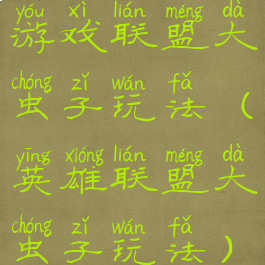 yóu xì lián méng dà
游戏联盟大
chóng zǐ wán fǎ
虫子玩法（
yīng xióng lián méng dà
英雄联盟大
chóng zǐ wán fǎ
虫子玩法）